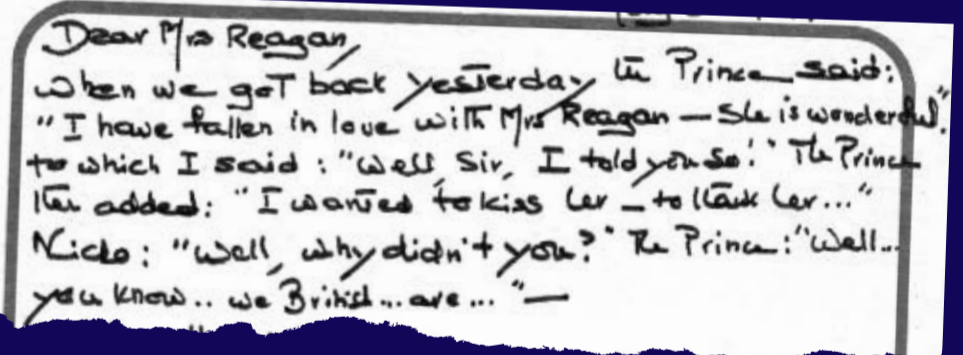 Dear Mrs Reagan,
When we got back yesterday the Prince said:
"I have fallen in love with Mrs Reagan — She is wonderful".
to which I said : "Well, Sir, I told you so!" The Prince
then added: "I wanted to kiss her — to thank her..."
Nicko: "Well, why didn't you?" The Prince: "Well...
you know.. we British... are... "—